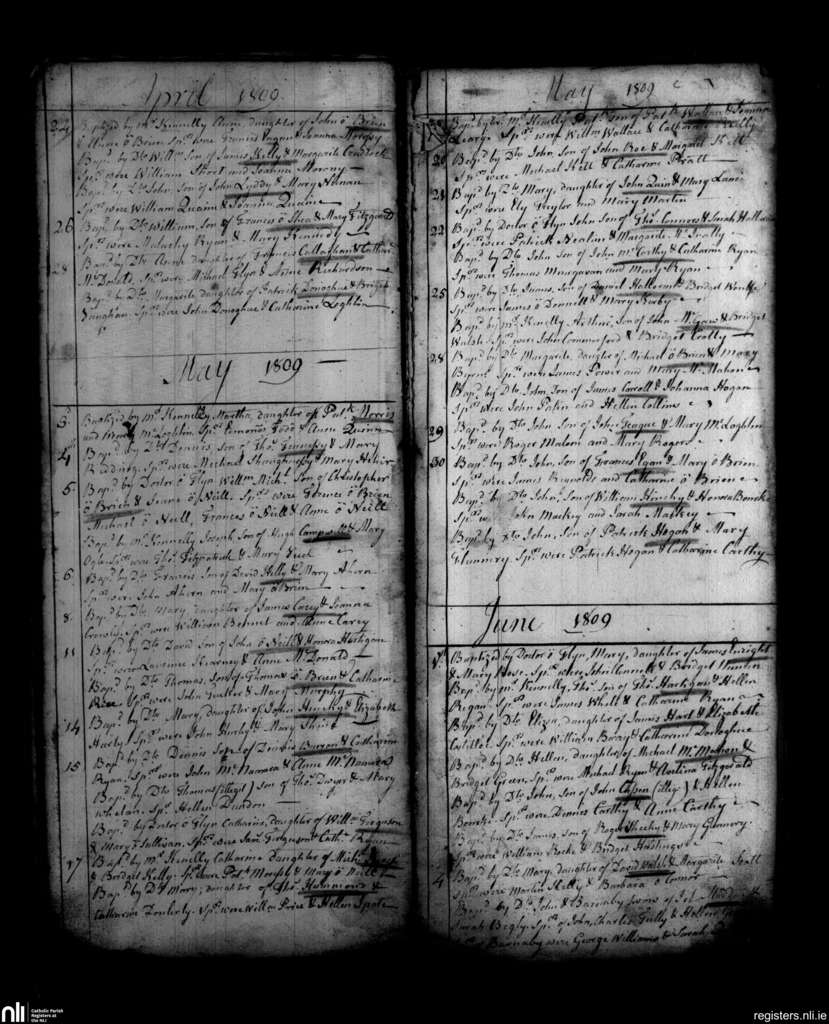 April 1809
24 Baptized by Mr Kennelly Anne, daughter of John ó Brien
& Anne ó Brien Sprs were Francis Fagan & Joanna Morgsy
Bapd by Do Willm Son of James Kelly & Margarite
Sprs were William Stret and Joanna Morony
Bapd by Do John, Son of John Lyddy & Mary Noonan
Sprs were William Quaine & Joanna Quaine
26 Bapd by Do William, Son of Francis ó Shea & Mary Fitzgerald
Sprs were Malachy Ryan & Mary Kennedy
Bapd by Do Anne daughter of Francis Callaghan & Catherine
28 McDonald, Sprs were Michael Glyn & Anne Richardson
Bapd by Do Margarite daughter of Patrick Donoghue & Bridget
Vaughan. Sprs were John Donoghue & Catharine Loghlin
May 1809
3 Baptized by Mr Kennelly Martha, daughter of Patk Norris
and Mary McLoghlin Sprs Eamond Todd & Anne Quinn
4 Bapd by Do Dennis Son of Thos Hennessy & Mary
Redding. Sprs were Michael Shaughnessy & Mary
5 Bapd by Doctor ó Glyn Willm Michl Son of Christopher
ó Brien & Jeane ó Neill. Sprs were Terence ó Brien
Michael ó Neill, Frances ó Neill & Anne ó Neill
Bapd by Mr Kennelly Joseph, Son of Hugh & Mary
Sprs were Thos Fitzpatrick & Mary
6 Bapd by Do Francis Son of David Hilly & Mary Ahern
Sprs were John Ahern and Mary ó Brien
8 Bapd by Do Mary daughter of James Carey & Joanna
Sprs were William Bennet and Anne Carey
11 Bapd by Do David Son of John ó Neill & Honora Hartigan
Sprs were Lawrence Kearney & Anne McDonald
Bapd by Do Thomas, Son of Thomas ó Brien & Catharine
Sprs were John Tucker & Mary Murphy
14 Bapd by Do Mary, daughter of John Hinchy & Elizabeth
Harty. Sprs were John Hurly & Mary
15 Bapd by Do Dennis Son of Dennis Burren & Catharine
Ryan, Sprs were John McNamara & Anne McNamara
Bapd by Do Thomas (illegit) Son of Thos Dwyer & Mary
Whelan. Spr Hellen
Bapd by Doctor ó Glyn Catharine, daughter of Willm Ferguson
& Mary ó Sullivan, Sprs were Saml Ferguson & Cath. Ryan
17 Bapd by Mr Kennelly Catharine Daughter of Michl
& Bridget Kelly. Sprs were Patk Murphy & Mary ó Neill
Bapd by Do Mary, daughter of Thos Hammond &
Catharine Doherty. Sprs were Willm Price & Hellen
May 1809
Bapd by Mr Kenelly Patk Son of Patk Wallace & Joanna
Sprs were Willm Wallace & Catharine Kelly
20 Bapd by Do John, Son of John Roe & Margaret Hill
Sprs were Michael Hill & Catharine Pratt
21 Bapd by Do Mary, daughter of John Quin & Mary Lane
Sprs were Ely Taylor and Mary Martin
22 Bapd by Doctor ó Glyn John Son of Thos Connors & Sarah
Sprs were Patrick & Margarite McInally
Bapd by Do John Son of John McCarthy & Catharine Ryan
Sprs were Thomas Mangavan and Mary Ryan
25 Bapd by Do James, Son of Daniel & Bridget
Sprs were James ó Donnell & Mary Kirby
Bapd by Mr Kenelly Arthur, Son of John McGraw & Bridget
Walsh Sprs were John Commerford & Bridget
28 Bapd by Do Margarite, Daughter of Michael ó Brien & Mary
Sprs were James Power and Mary McMahon
Bapd by Do John, Son of James Carroll & Johanna Hogan
Sprs were John and Hellen Collins
29 Bapd by Do Son of John Teague & Mary McLoghlin
Sprs were Roger Malon and Mary Rogers
30 Bapd by Do John, Son of Francis Egan & Mary ó Brien
Sprs were James Reynolds and Catharine ó Brien
Bapd by Do John, Son of William Hinchy & Honora Bourke
Sprs w John Mackey and Sarah Mackey
Bapd by Do John, Son of Patrick Hogan & Mary
Flannery. Sprs were Patrick Hogan & Catharine Carthy
June 1809
1st Baptized by Doctor ó Glyn, Mary, daughter of James Enright
& Mary Hose. Sprs were John & Bridget
Bapd by Mr Kennelly, Thos Son of Thos Hartigan & Hellen
Regan. Sprs were James Whell & Catharine Ryan
Bapd by Do Eliza, daughter of James Hart & Elizabeth
Sprs were William & Catharine Donoghue
Bapd by Do Hellen, daughter of Michael McMahon &
Bridget Green, Sprs were Michael Ryan & Avelina Fitzgerald
Bapd by Do John, Son of John (illeg.) & Hellen
Bourke. Sprs were Dennis Carthy & Anne Carthy
Bapd by Do James, Son of Roger Sheehy & Mary
Sprs were William Roche & Bridget Hastings
4 Bapd by Do Mary daughter of David Walsh & Margarite Scott
Sprs were Martin Kelly & Barbara ó Connor
Bapd by Do John & Barnaby twins of
Sarah Begly. Sprs of John, Charles Tully & Hellen
Barnaby were George Williams & Sarah
nli Catholic Parish
Registers at
the NLI
registers.nli.ie